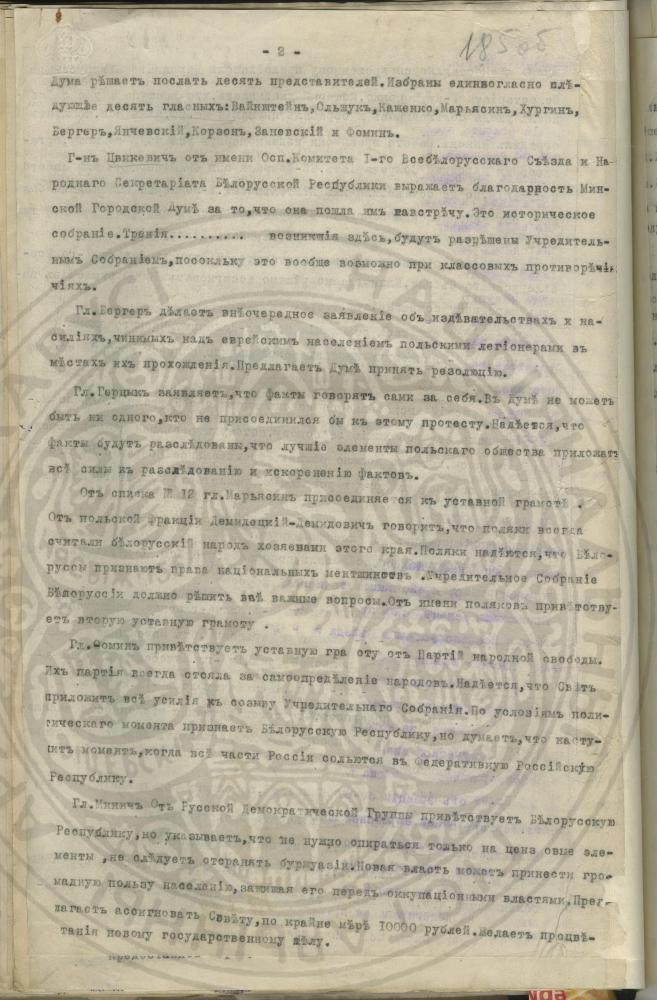 - 2 -
185об
Дума рѣшаетъ послать десять представителей.Избраны единвогласно слѣ-
дующіе десять гласныхъ:Вайнштейнъ,Ольщукъ,Каценко,Марьясинъ,Хургинъ,
Бергеръ,Янчевскій,Корзонъ,Заневскій и Фоминъ.
Г-нъ Цвикевичъ отъ имени Осп.Комитета I-го Всебѣлорусскаго Съѣзда и На-
роднаго Секретаріата Бѣлорусской Республики выражаетъ благодарность Мин-
ской Городской Думѣ за то,что она пошла имъ навстрѣчу.Это историческое
собраніе.Тренія.......... возникшія здѣсь,будутъ разрѣшены Учредитель-
нымъ Собраніемъ,посокльку это вообще возможно при классовыхъ противорѣчі-
чіяхъ.
Гл.Бергеръ дѣлаетъ внѣочередное заявленіе объ издѣвательствахъ и на-
силіяхъ,чинимыхъ надъ еврейскимъ населеніемъ польскими легіонерами въ
мѣстахъ ихъ прохожленія.Предлагаетъ Думѣ принять резолюцію.
Гл.Герцыкъ заявляетъ,что факты говорятъ сами за себя.Въ Думѣ не можетъ
быть ни одного,кто не присоединился бы къ этому протесту.Надѣется,что
факты будутъ разслѣдованы,что лучшіе элементы польскаго общества приложатъ
всѣ силы къ разслѣдованію и искорененію фактовъ.
Отъ списка № 12 гл.Марьясинъ присоединяется къ уставной грамотѣ .
Отъ польской фракціи Демидецкій-Демидовичъ говоритъ,что поляки всегда
считали бѣлорусскій народъ хозяевами этого края.Поляки надѣются,что Бѣло-
руссы признаютъ права національныхъ меншинствъ .Учредительное Собраніе
Бѣлоруссіи должно рѣшить всѣ важные вопросы.Отъ имени поляковъ привѣтству-
етъ вторую уставную грамоту .
Гл.Фоминъ привѣтствуетъ уставную гра оту отъ Партій народной свободы.
Ихъ партія всегда стояла за самоопредѣленіе народовъ.Надѣется,что Свѣтъ
приложитъ всѣ усилія къ созыву Учредительнаго Собранія.По условіямъ поли-
тическаго момента признаетъ Бѣлорусскую Республику,но думаетъ,что насту-
питъ моментъ,когда всѣ части Россіи сольются въ Федеративную Россійскую
Республику.
Гл.Миничъ Отъ Русской Демократической Группы привѣтствуетъ Бѣлорусскую
Республику,но указываетъ,что не нужно опираться только на ценз овые эле-
менты ,не слѣдуетъ отсранять буржуазіи.Новая власть можетъ принести гро-
мадную пользу населенію,защищая его передъ оккупаціонными властями.Пред-
лагаетъ ассигновать Совѣту,по крайне мѣрѣ 10000 рублей.Желаетъ процвѣ-
танія новому государственному дѣлу.